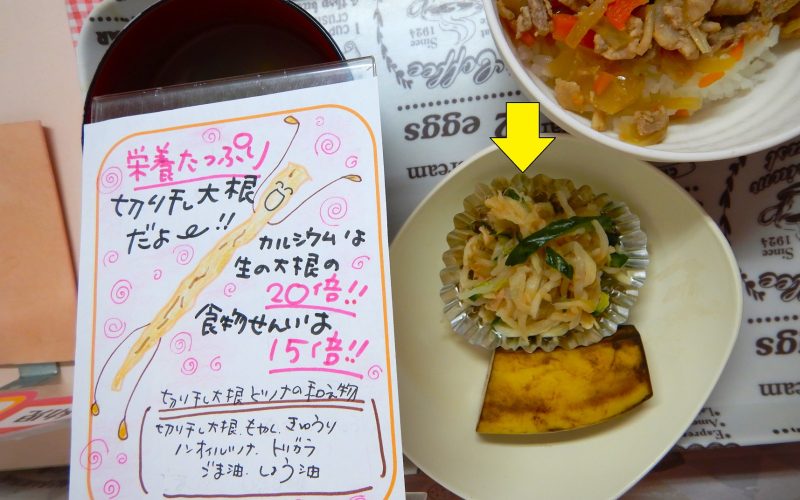 栄養たっぷり
切り干大根
だよ〜!!
カルシウムは
生の大根の
20倍!!
食物せんいは
15倍!!
切り干し大根とツナの和え物
切り干し大根、もやし、きゅうり
ノンオイルツナ、トリガラ
ごま油、しょう油
I CU
crus
Since
1924
Coffee
2 eggs
ream
Since
1924
eggs
Espres
Amer